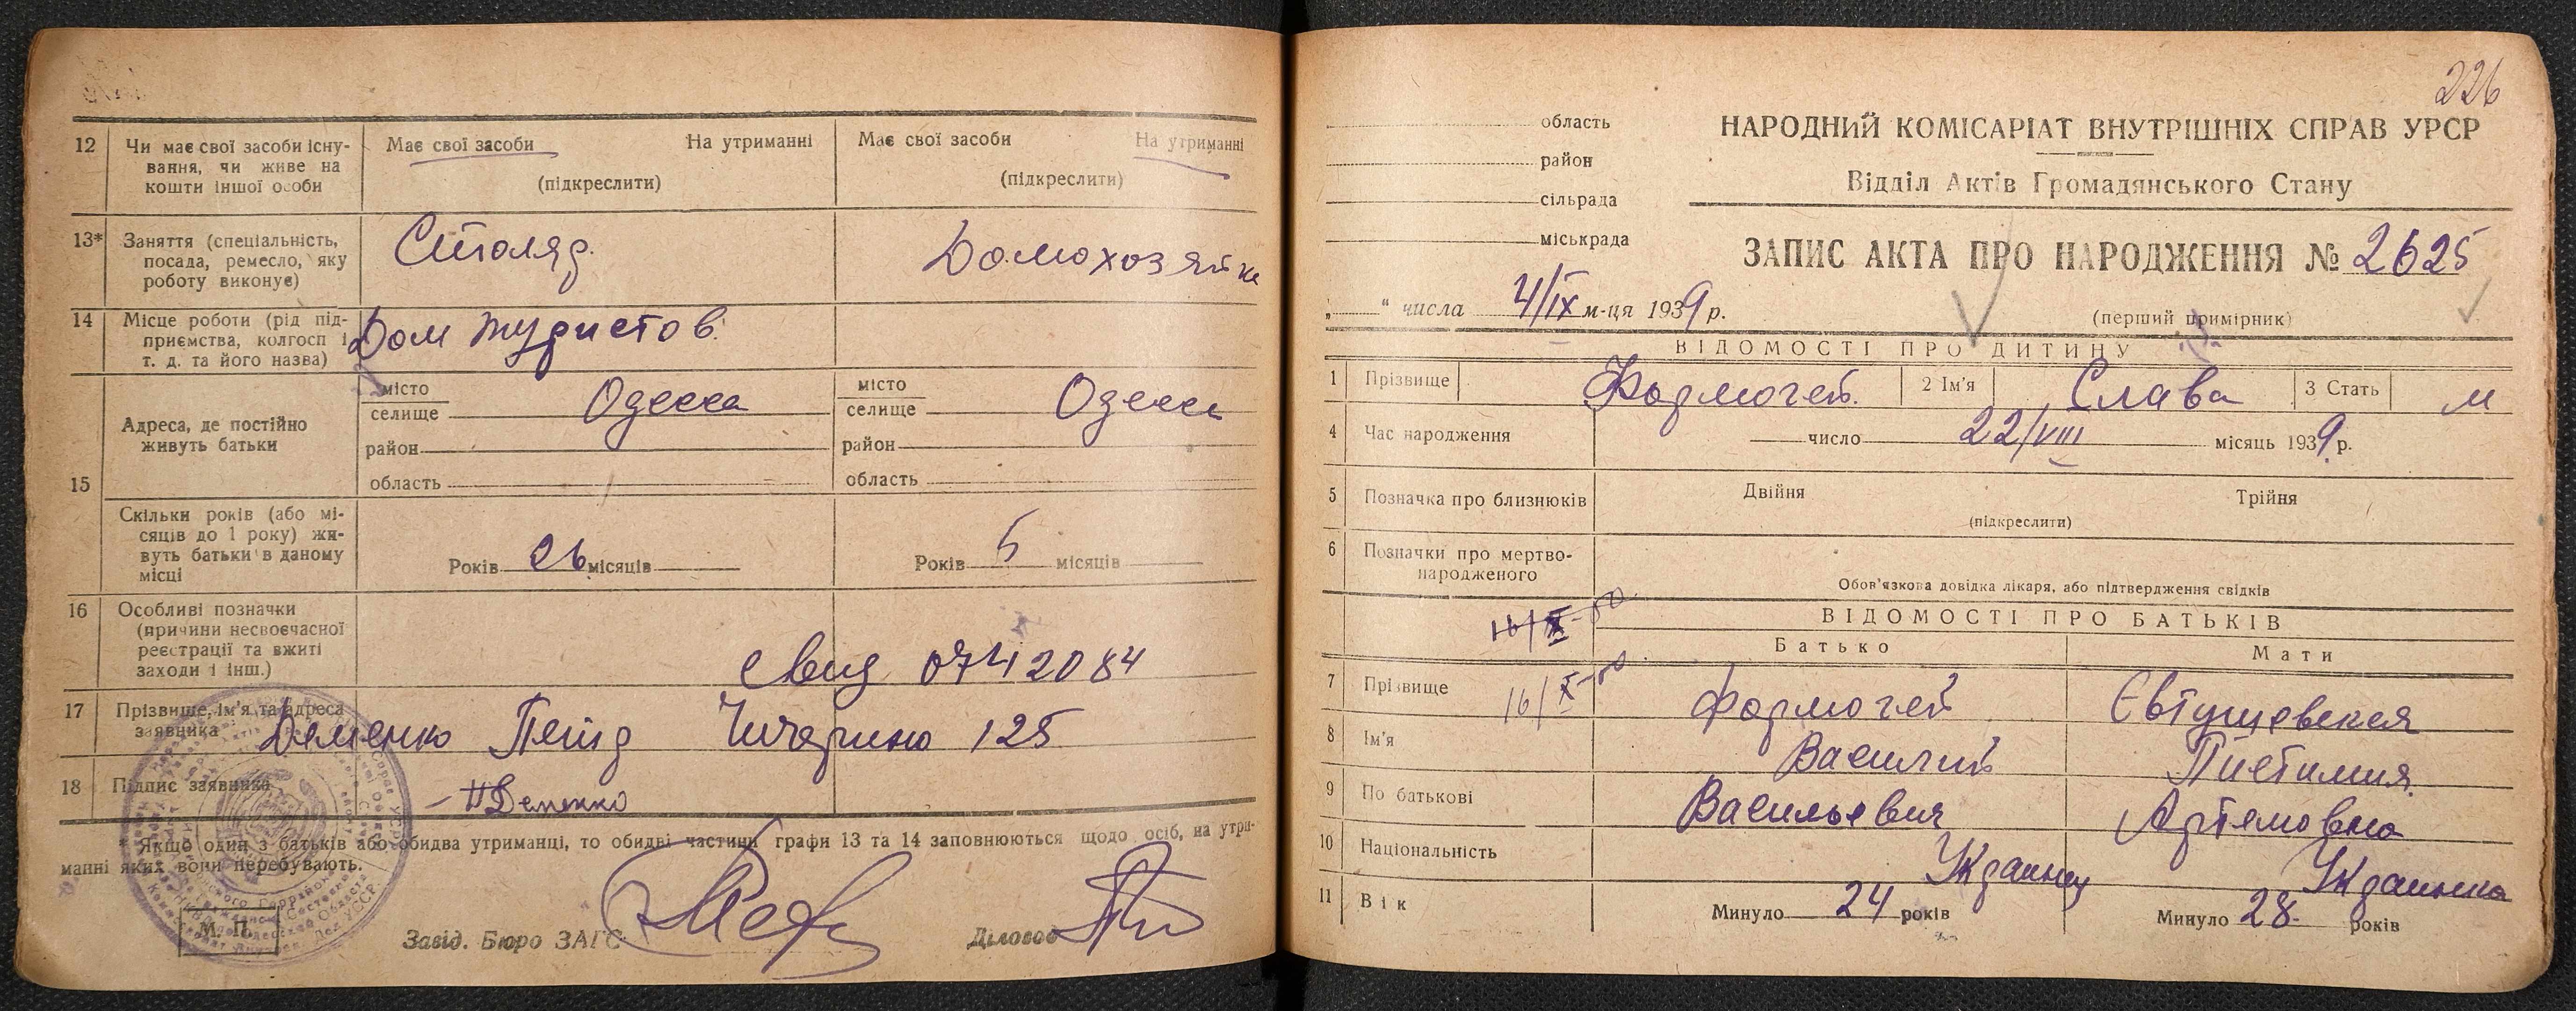 12 Чи має свої засоби існу-
вання, чи живе на
кошти іншої особи
Має свої засоби На утриманні
(підкреслити)
Має свої засоби На утриманні
(підкреслити)
13* Заняття (спеціальність,
посада, ремесло, яку
роботу виконує)
Столяр.
Домохозяйка
14 Місце роботи (рід під-
приємства, колгосп і
т. д. та його назва)
Дом туристов
15 Адреса, де постійно
живуть батьки
місто
селище Одесса
район
область
місто
селище Одесса
район
область
Скільки років (або мі-
сяців до 1 року) жи-
вуть батьки в даному
місці
Років 26 місяців
Років 5 місяців
16 Особливі позначки
(причини несвоєчасної
реєстрації та вжиті
заходи і інш.)
свид 0742084
17 Прізвище, ім'я та адреса
заявника
Деменко Петр Чичерина 125
18 Підпис заявника
* Якщо один з батьків або обидва утриманці, то обидві частини графи 13 та 14 заповнюються щодо осіб, на утри-
манні яких вони перебувають.
М. П.
Завід. Бюро ЗАГС
Діловод
226
область
район
сільрада
міськрада
НАРОДНИЙ КОМІСАРІАТ ВНУТРІШНІХ СПРАВ УРСР
Відділ Актів Громадянського Стану
ЗАПИС АКТА ПРО НАРОДЖЕННЯ № 2625
„ “ числа 4/IX м-ця 1939 р.
(перший примірник)
ВІДОМОСТІ ПРО ДИТИНУ
1 Прізвище Формогей 2 Ім'я Слава 3 Стать м
4 Час народження число 22/VIII місяць 1939 р.
5 Позначка про близнюків Двійня Трійня
(підкреслити)
6 Позначки про мертво-
народженого
Обов'язкова довідка лікаря, або підтвердження свідків
16/X-50
ВІДОМОСТІ ПРО БАТЬКІВ
Батько Мати
16/X-50
7 Прізвище Формогей Євтушевская
8 Ім'я Василий Пистимия
9 По батькові Васильевич Артемовна
10 Національність Украинец Украинка
11 Вік Минуло 24 років Минуло 28 років